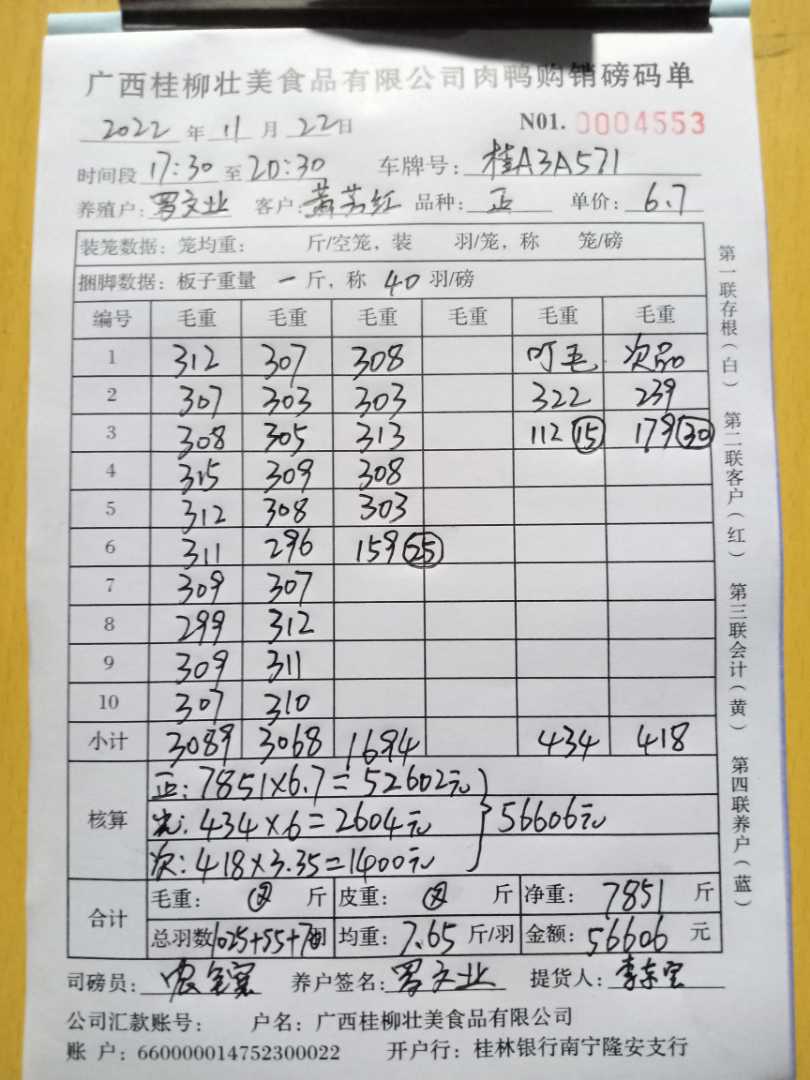 广西桂柳壮美食品有限公司肉鸭购销磅码单
2022年11月22日 N01. 0004553
时间段 17:30 至 20:30 车牌号: 桂A3A571
养殖户: 罗文业 客户: 黄苏红 品种: 正 单价: 6.7
装笼数据: 笼均重: 斤/空笼, 装 羽/笼, 称 笼/磅
捆脚数据: 板子重量 一 斤, 称 40 羽/磅
编号 毛重 毛重 毛重 毛重 毛重 毛重
1 312 307 308 叮毛 次品
2 307 303 303 322 239
3 308 305 313 112 ⑮ 179 ㉚
4 315 309 308
5 312 308 303
6 311 296 159 ㉕
7 309 307
8 299 312
9 309 311
10 307 310
小计 3089 3068 1694 434 418
核算 正: 7851×6.7=52602元
光: 434×6=2604元 56606元
次: 418×3.35=1400元
合计 毛重: 斤 皮重: 斤 净重: 7851 斤
总羽数 1025+55+70 均重: 7.65 斤/羽 金额: 56606 元
司磅员: 养户签名: 罗文业 提货人:
公司汇款账号: 户名: 广西桂柳壮美食品有限公司
账 户: 660000014752300022 开户行: 桂林银行南宁隆安支行
第一联存根(白) 第二联客户(红) 第三联会计(黄) 第四联养户(蓝)